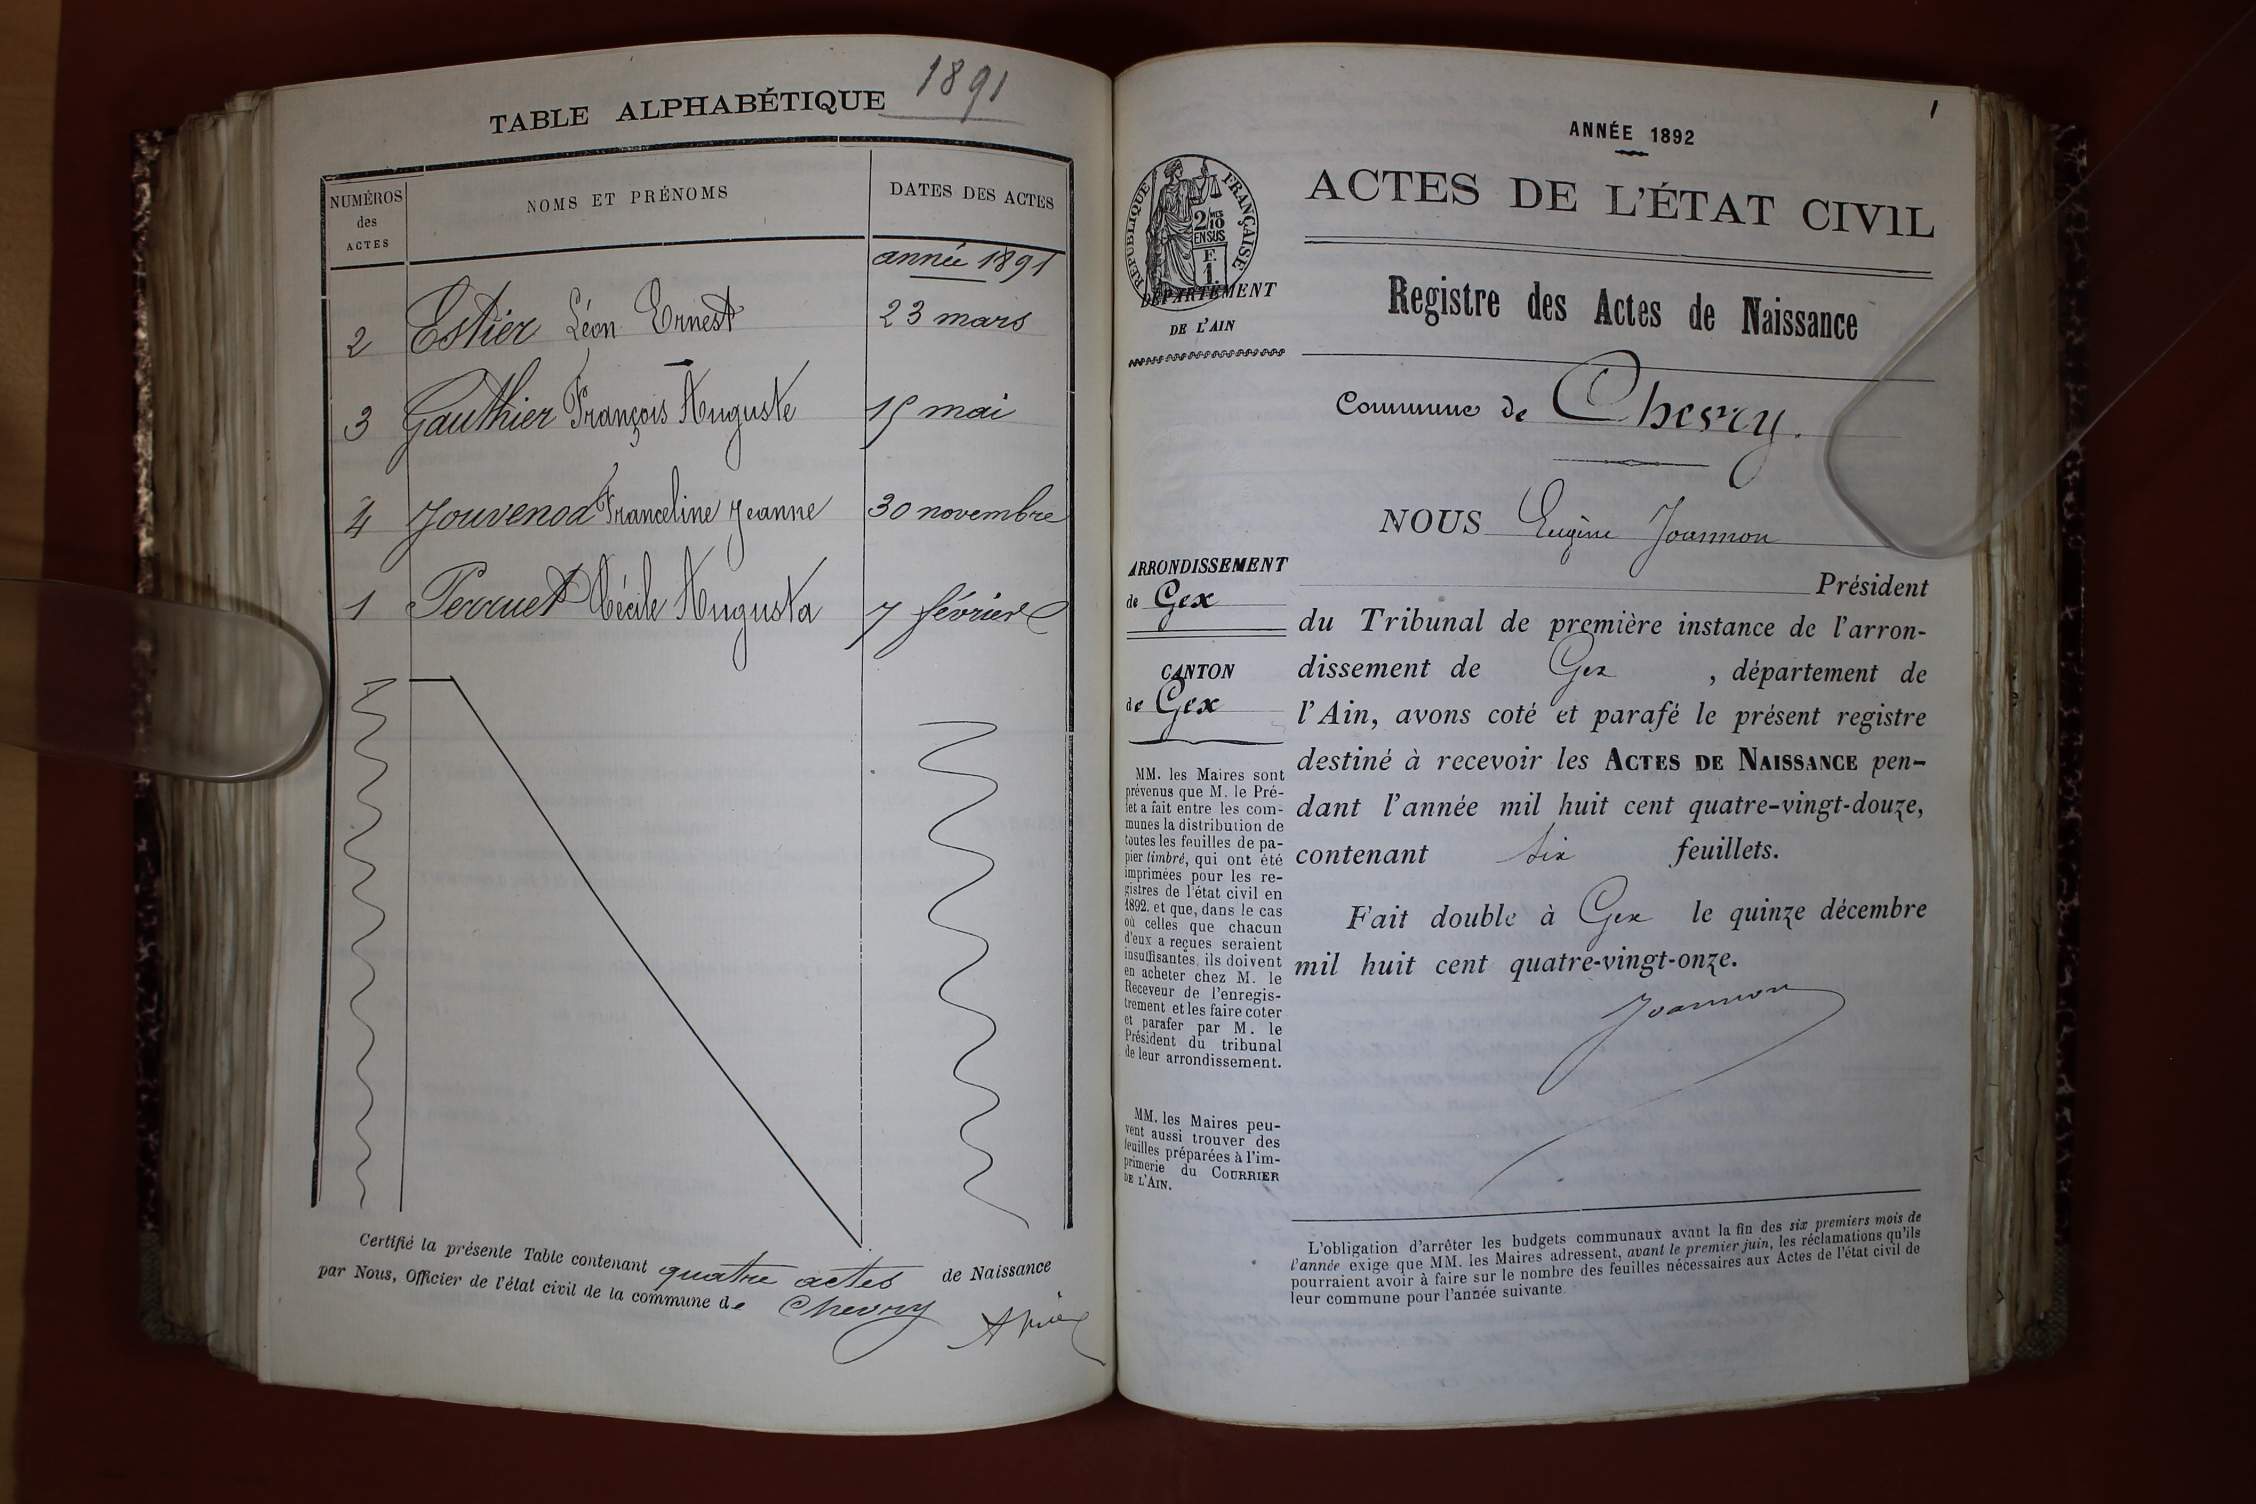 TABLE ALPHABÉTIQUE 1891
NUMÉROS
des
ACTES
NOMS ET PRÉNOMS
DATES DES ACTES
année 1891
2 Estier Léon Ernest 23 mars
3 Gauthier François Auguste 15 mai
4 Jouvenod Franceline Jeanne 30 novembre
1 Perruet Cécile Augusta 7 février
Certifié la présente Table contenant quatre actes de Naissance
par Nous, Officier de l'état civil de la commune de Chevry
1
ANNÉE 1892
ACTES DE L'ÉTAT CIVIL
RÉPUBLIQUE FRANÇAISE
2/10
EN SUS
F.
1.
DÉPARTEMENT
DE L'AIN
Registre des Actes de Naissance
Commune de Chevry.
NOUS Eugène Joannon
Président
du Tribunal de première instance de l'arron-
dissement de Gex, département de
l'Ain, avons coté et parafé le présent registre
destiné à recevoir les ACTES DE NAISSANCE pen-
dant l'année mil huit cent quatre-vingt-douze,
contenant six feuillets.
Fait double à Gex le quinze décembre
mil huit cent quatre-vingt-onze.
Joannon
ARRONDISSEMENT
de Gex
CANTON
de Gex
MM. les Maires sont
prévenus que M. le Pré-
fet a fait entre les com-
munes la distribution de
toutes les feuilles de pa-
pier timbré, qui ont été
imprimées pour les re-
gistres de l'état civil en
1892. et que, dans le cas
où celles que chacun
d'eux a reçues seraient
insuffisantes, ils doivent
en acheter chez M. le
Receveur de l'enregis-
trement et les faire coter
et parafer par M. le
Président du tribunal
de leur arrondissement.
MM. les Maires peu-
vent aussi trouver des
feuilles préparées à l'im-
primerie du COURRIER
DE L'AIN.
L'obligation d'arrêter les budgets communaux avant la fin des six premiers mois de
l'année exige que MM. les Maires adressent, avant le premier juin, les réclamations qu'ils
pourraient avoir à faire sur le nombre des feuilles nécessaires aux Actes de l'état civil de
leur commune pour l'année suivante.